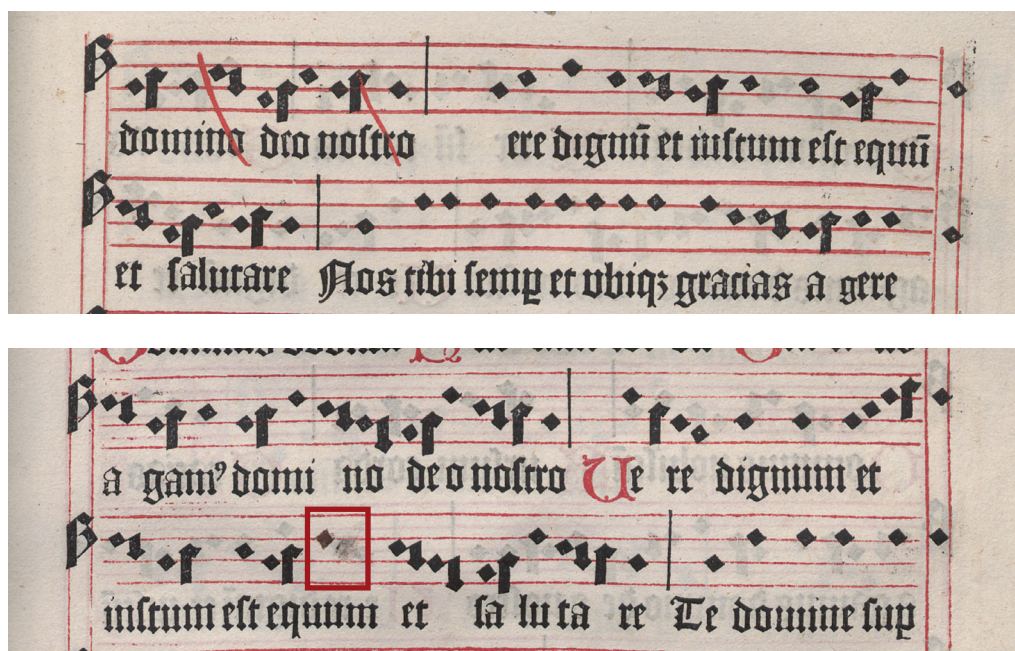 domino deo nostro ere dignū et iustum est equū
et salutare Nos tibi semꝑ et vbiqꝫ gracias a gere
a gamꝰ domi no deo nostro Ue re dignum et
iustum est equum et sa lu ta re Te domine sup